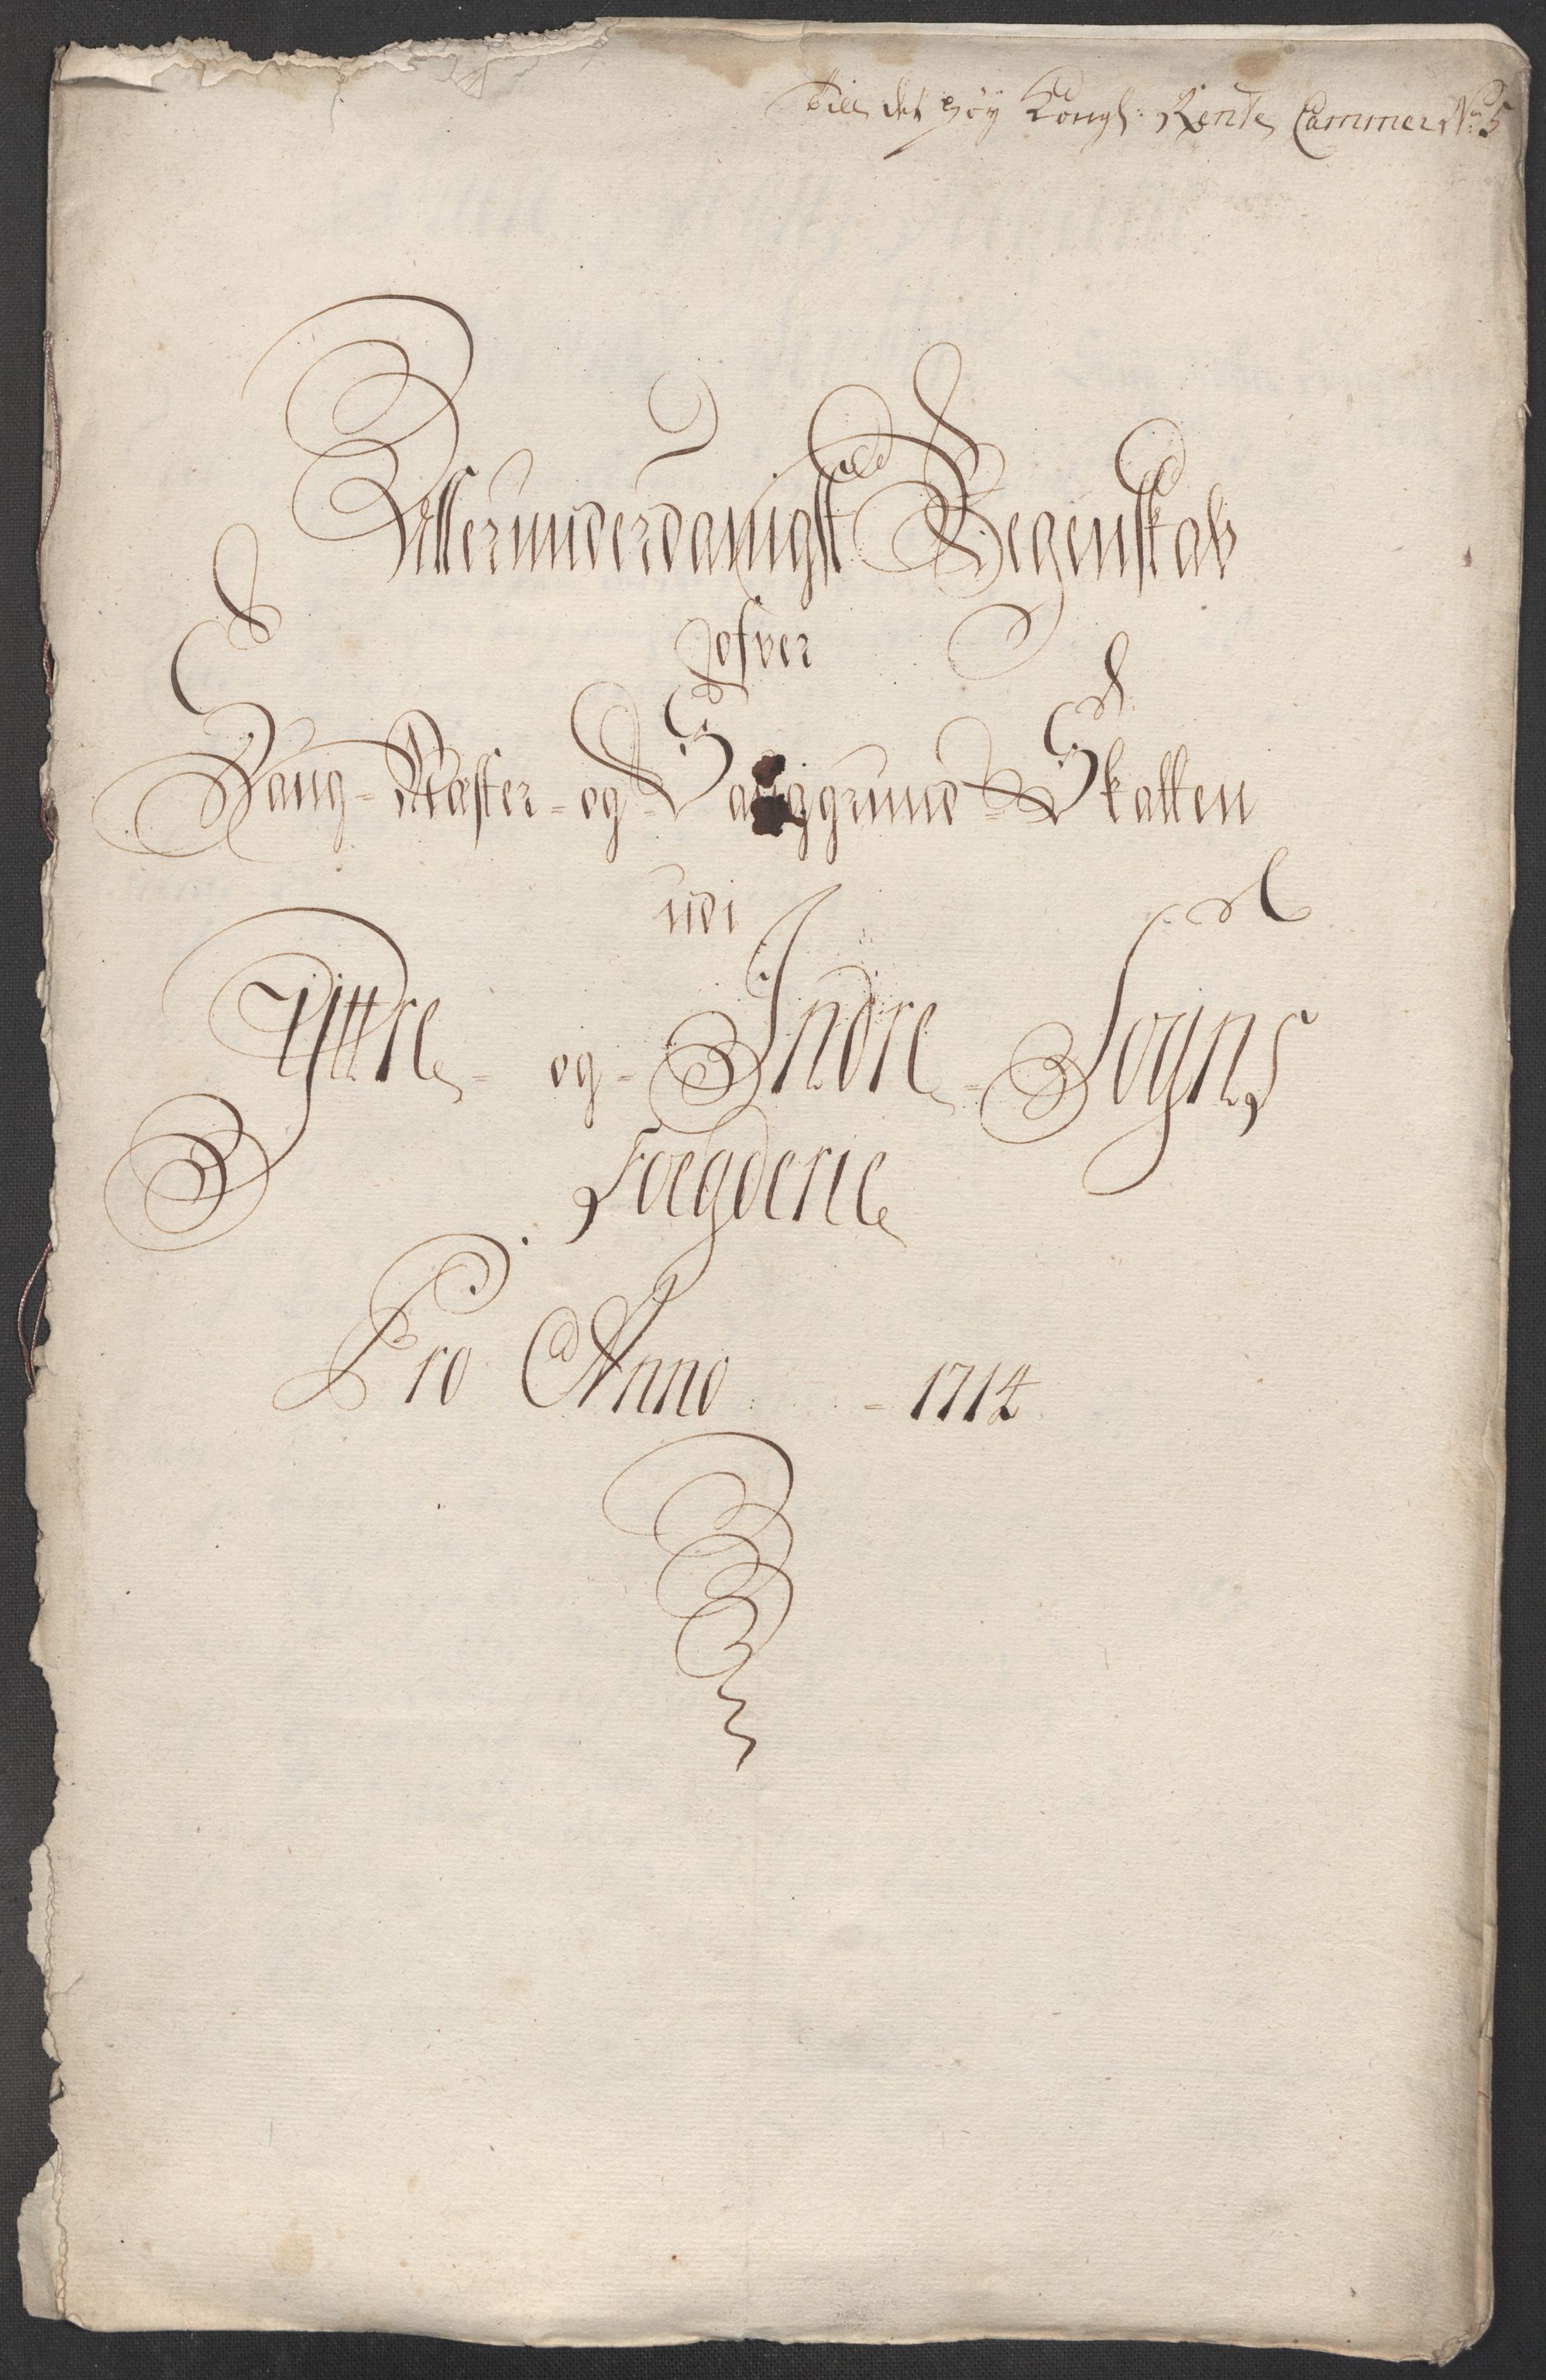 Till det Höÿ Kongl: Rente Cammer No: 5
Allerunderdanigst Regenskab
ofver
Saug- Mæster- og Sauggrund- Skatten
udi
Yttre- og- Indre- Sogns
Foegderie
Pro Anno - 1714